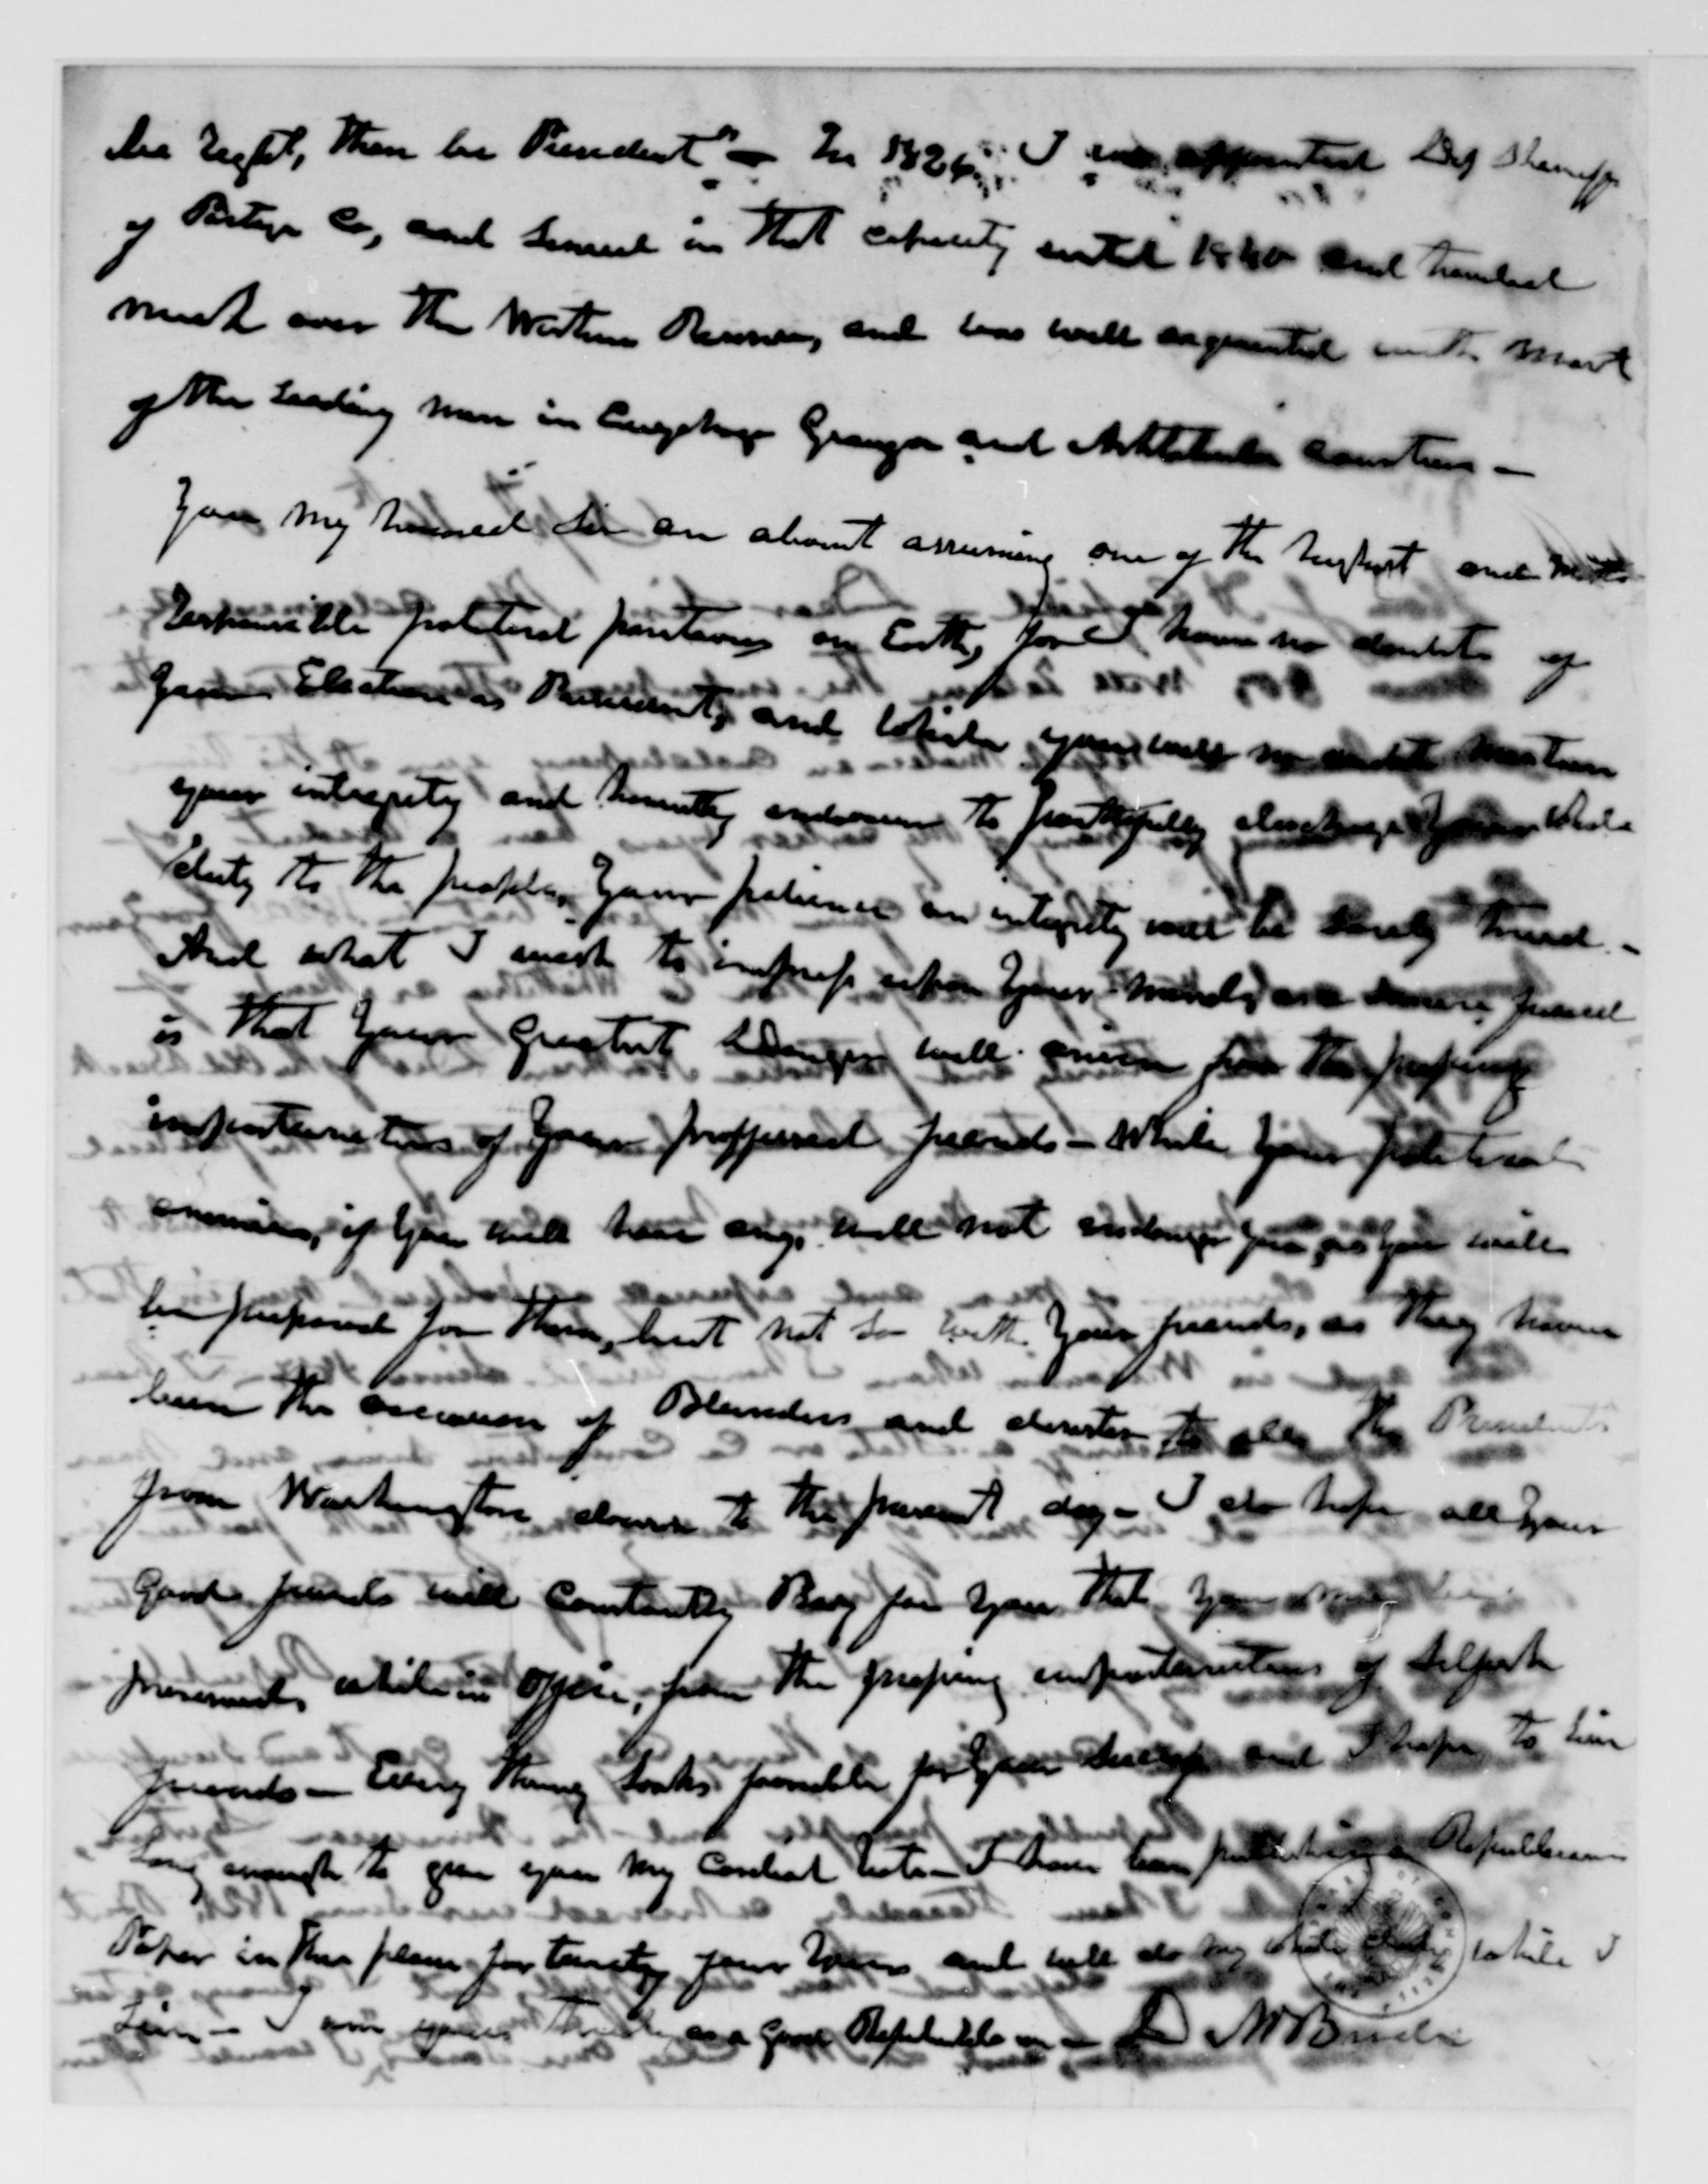 be right, then be President" — In 1826, I was appointed Dep Sheriff
of Portage Co, and served in that capacity until 1840 and traveled
much over the Western Reserve, and was well acquainted with most
of the leading men in Cuyahoga Geauga and Ashtabula counties —
You my honored sir are about assuming one of the highest and most
responsible political positions on Earth, for I have no doubts of
your Election as President, and while you will no doubt
your integrity and honestly endeavor to faithfully discharge your whole
duty to the people, your patience an integrity will be sorely tried —
And what I wish to impress upon your mind, as a sincere friend
is that your greatest danger will arise from the pressing
importunities of your proffessed friends — While your political
enemies, if you will have any, will not endanger you, as you will
be prepared for them, but not so with your friends, as they have
been the occasion of Blunders and to all the Presidents
from Washington down to the present day — I do hope all your
good friends will constantly Pray for you that you may be
preserved, while in office, from the pressing importunities of selfish
friends — Every thing looks favorable for your success and I hope to live
long enough to give you my cordial vote — I have been publishing a Republican
Paper in this place for twenty four years and will do my whole duty while I
live — I am yours as a good Republican — D McBride